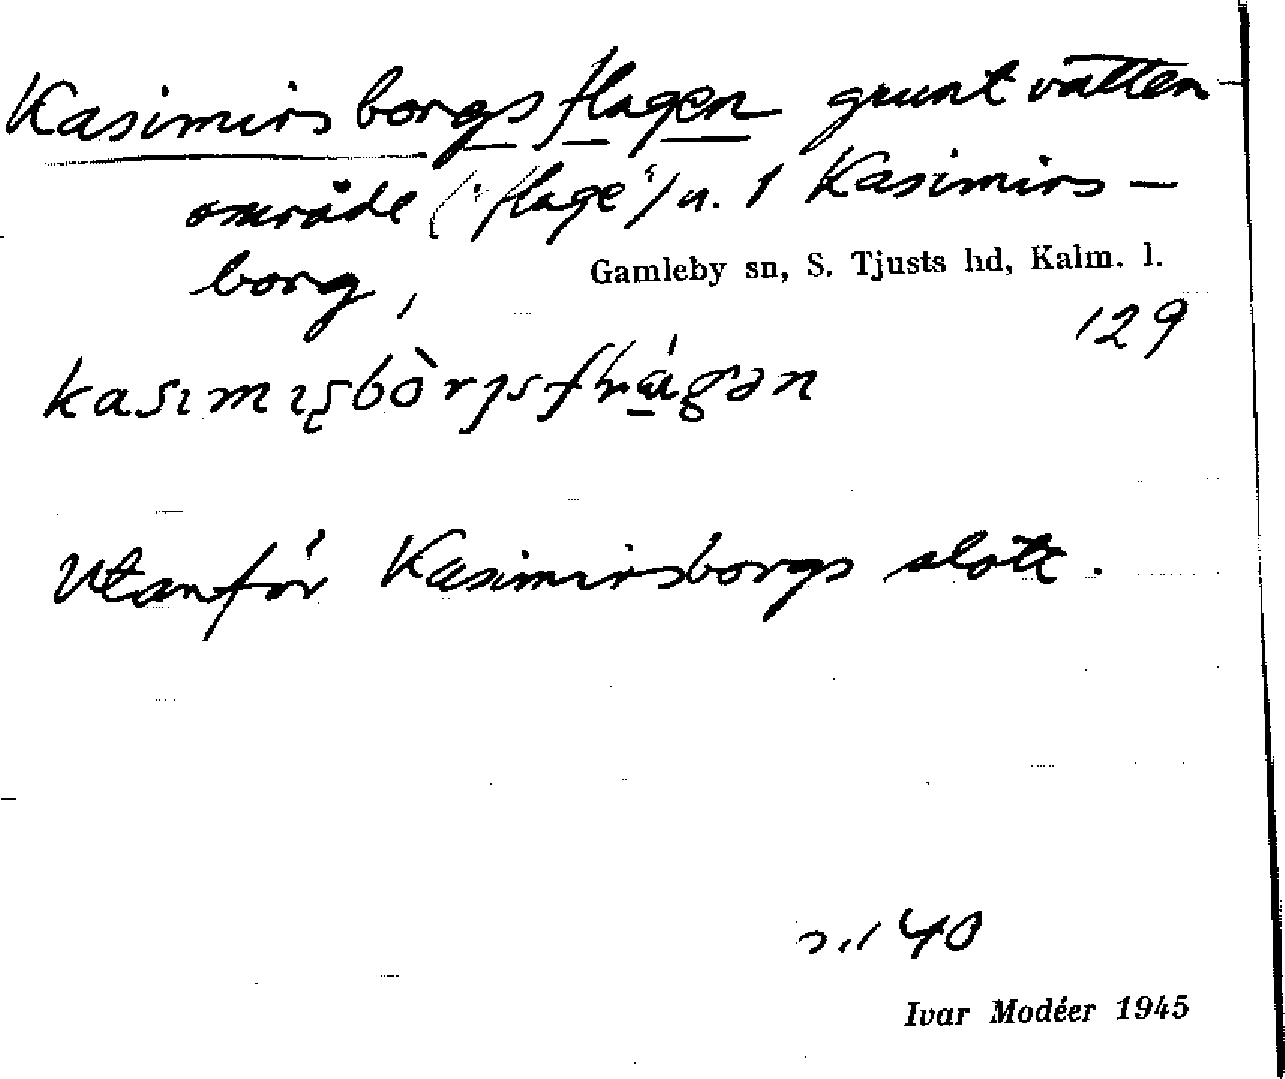 Kasimirsborgsflagen grunt vatten-
område ("flage") n. 1 Kasimirs-
borg,
Gamleby sn, S. Tjusts hd, Kalm. l.
129
Utanför Kasimirsborgs slott.
40
Ivar Modéer 1945